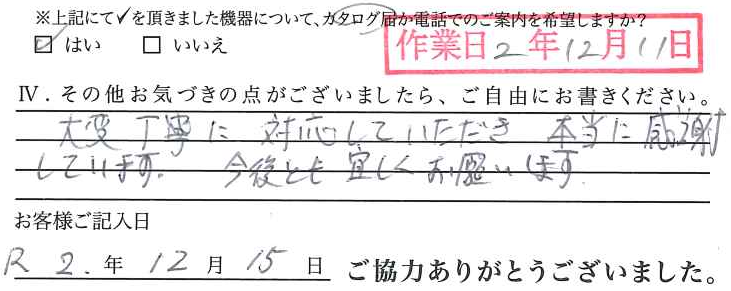 ※上記にて✓を頂きました機器について、カタログ届か電話でのご案内を希望しますか?
☑ はい □ いいえ
作業日 2年12月11日
Ⅳ.その他お気づきの点がございましたら、ご自由にお書きください。
大変丁寧に対応していただき 本当に感謝
しています。 今後とも宜しくお願いします
お客様ご記入日
R 2.年 12月 15日 ご協力ありがとうございました。